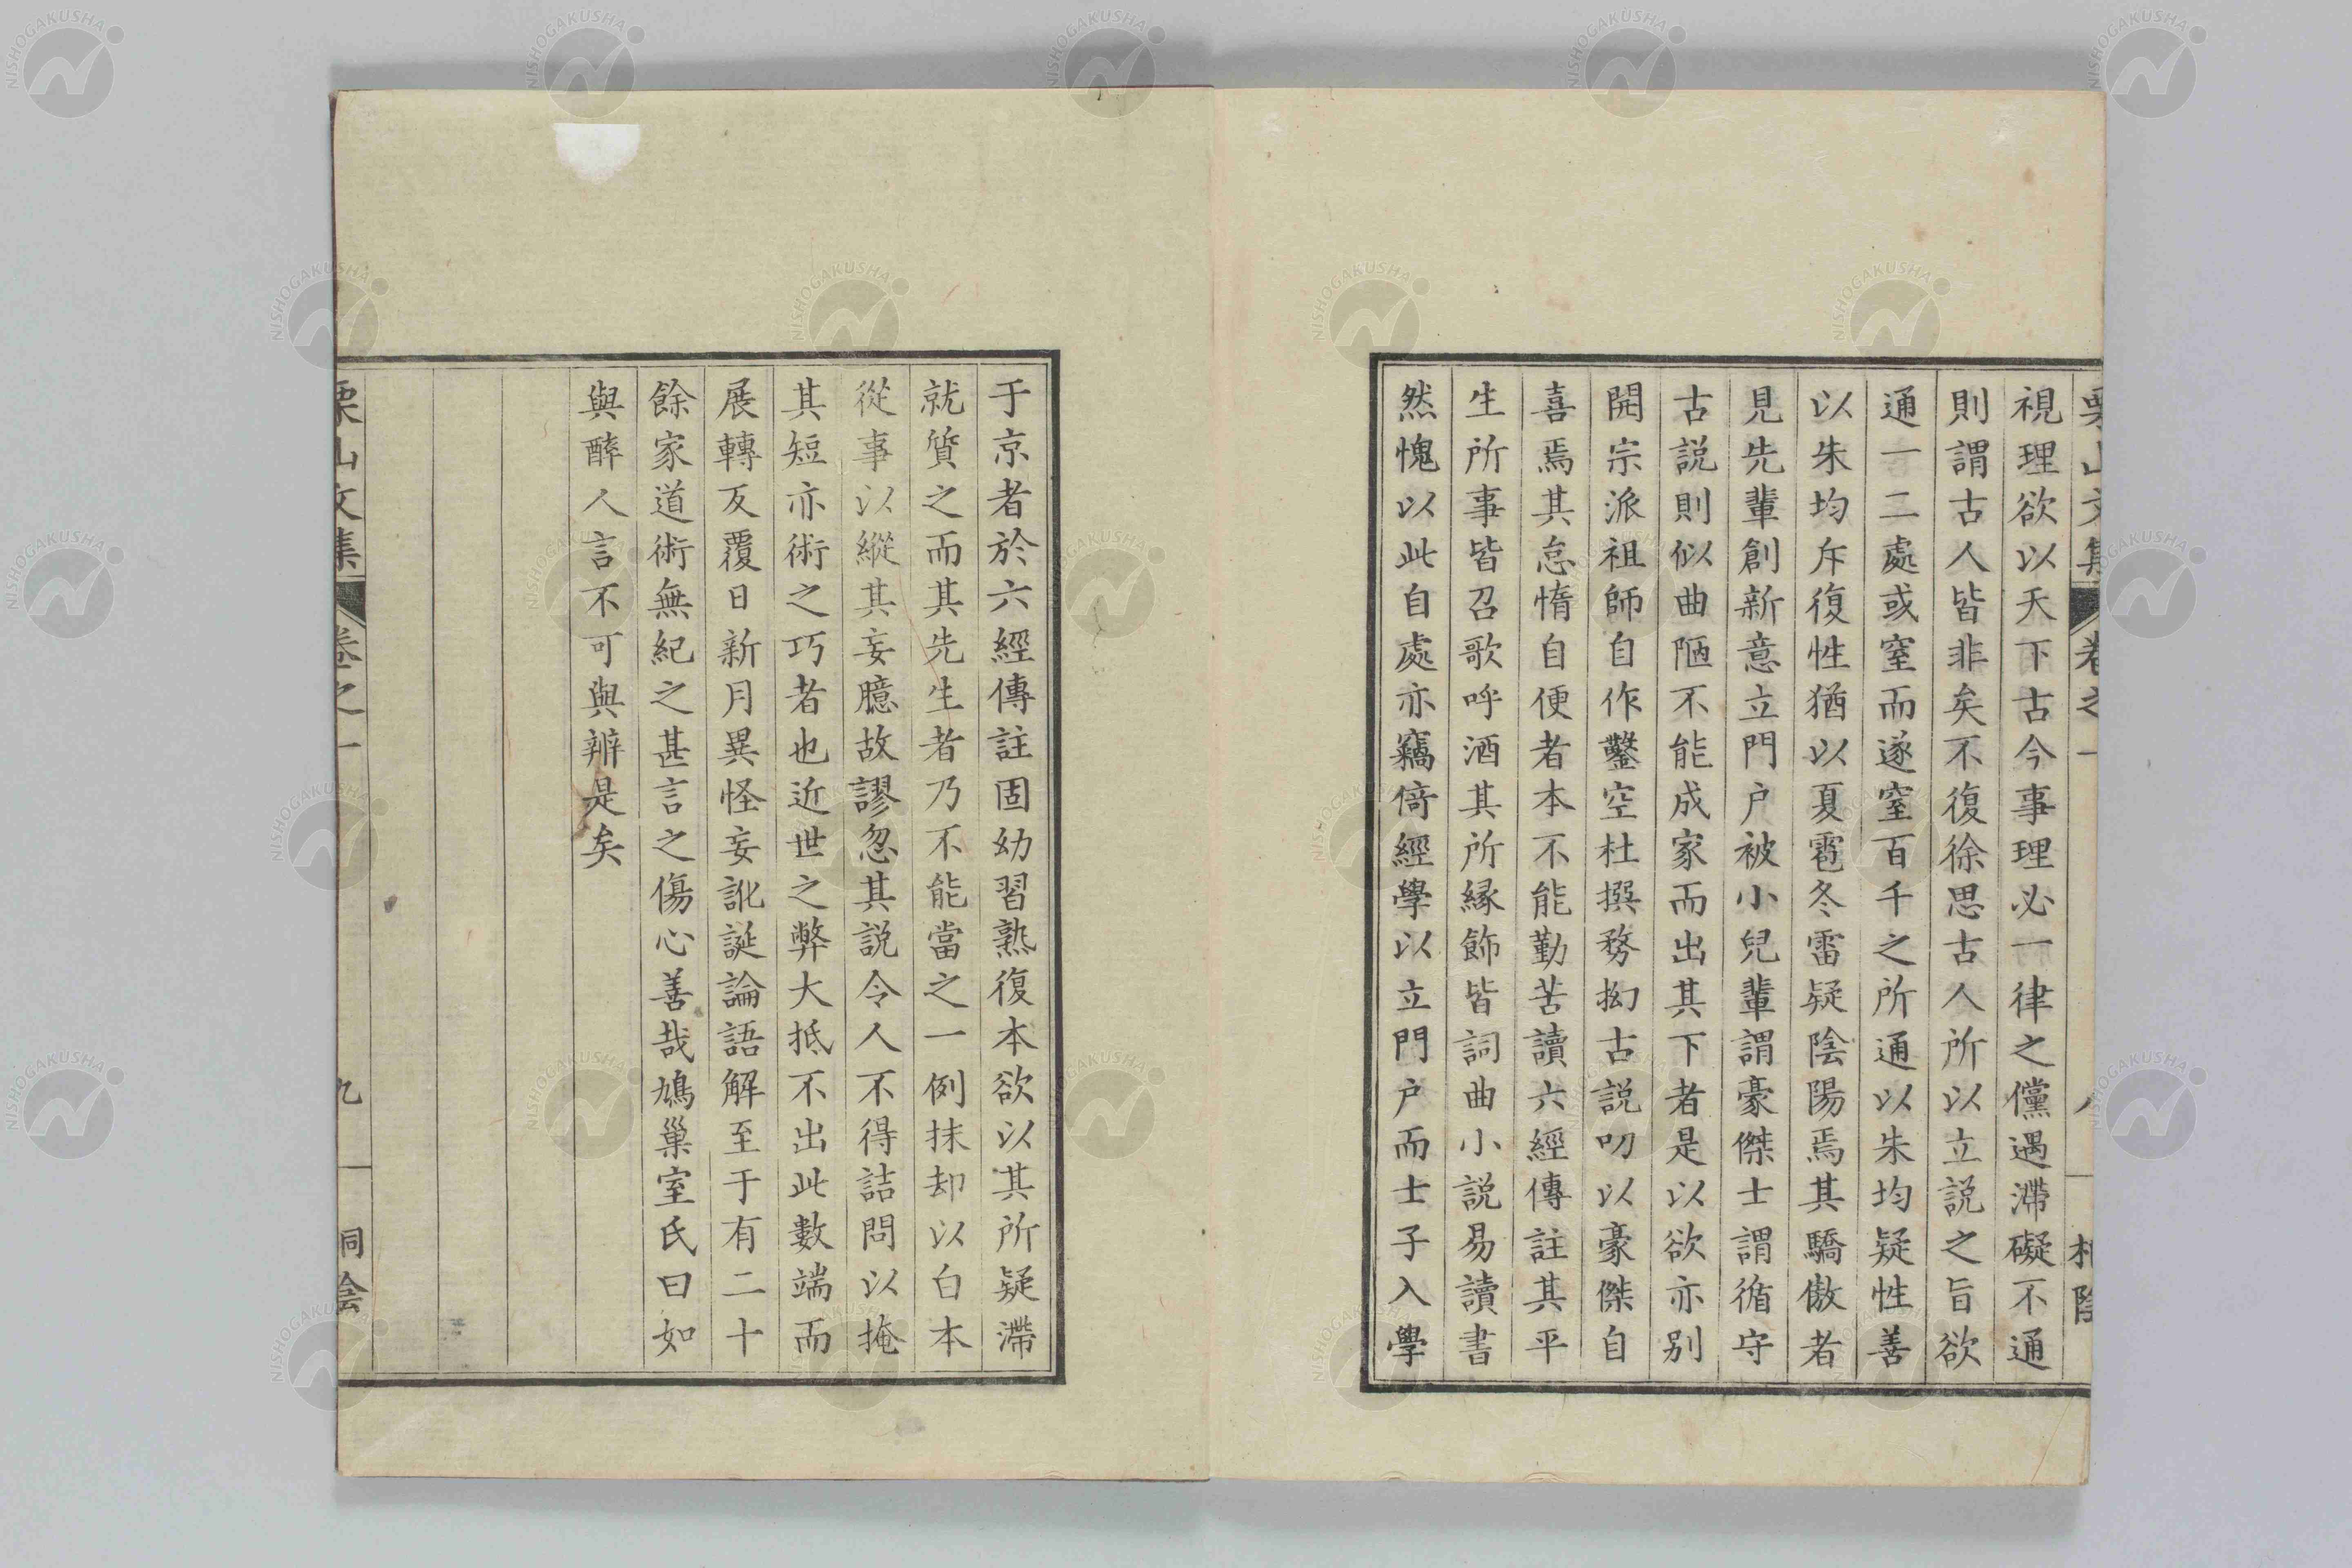 視理欲以天下古今事理必一律之儻遇滯礙不通
則謂古人皆非矣不復徐思古人所以立説之旨欲
通一二處或窒而遂窒百千之所通以朱均疑性善
以朱均斥復性猶以夏雹冬雷疑陰陽焉其驕傲者
見先輩創新意立門户被小兒輩謂豪傑士謂循守
古説則似曲陋不能成家而出其下者是以欲亦别
開宗派祖師自作鑿空杜撰務拗古説叨以豪傑自
喜焉其怠惰自便者本不能勤苦讀六經傳註其平
生所事皆召歌呼酒其所縁飾皆詞曲小説易讀書
然愧以此自處亦竊倚經學以立門户而士子入學
于京者於六經傳註固幼習熟復本欲以其所疑滯
就質之而其先生者乃不能當之一例抹却以白本
從事以縱其妄臆故謬忽其説令人不得詰問以掩
其短亦術之巧者也近世之弊大抵不出此數端而
展轉反覆日新月異怪妄訛誕論語解至于有二十
餘家道術無紀之甚言之傷心善哉鳩巢室氏曰如
與醉人言不可與辨是矣
栗山文集
卷之一
九
桐陰
NISHOGAKUSHA